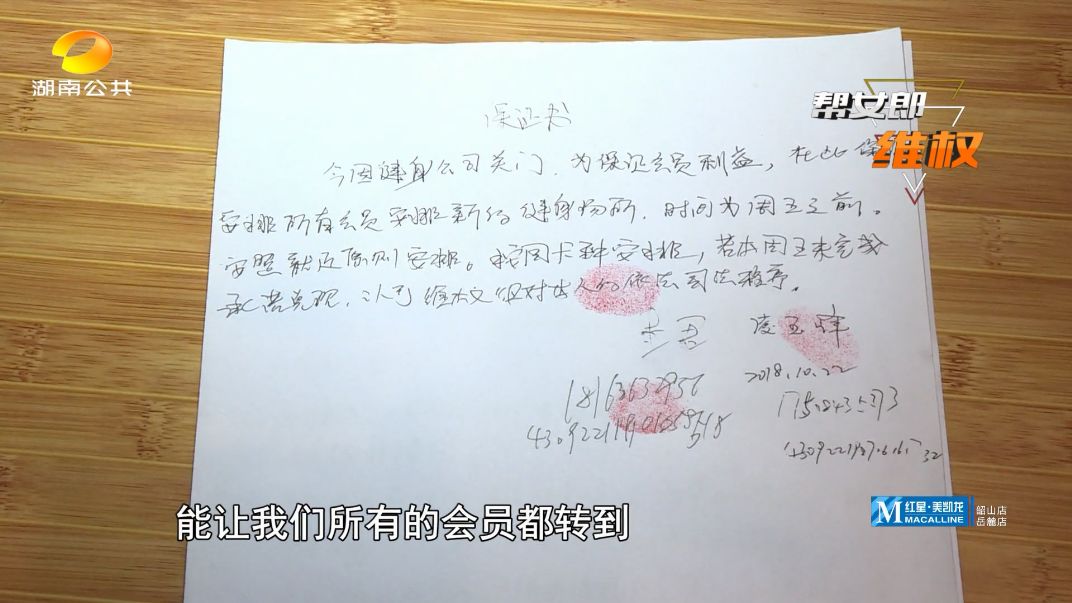 湖南公共
帮女郎
维权
保证书
今因健身公司关门，为保证会员利益，在此保
安排所有会员到新的健身场所，时间为周五之前。
安照就近原则安排。按同卡种安排，若本周五未完成
承诺兑现，认可 依法司法程序。
凌玉峰
2018.10.22
18163632956
能让我们所有的会员都转到
M 红星·美凯龙
MACALLINE
韶山店
岳麓店